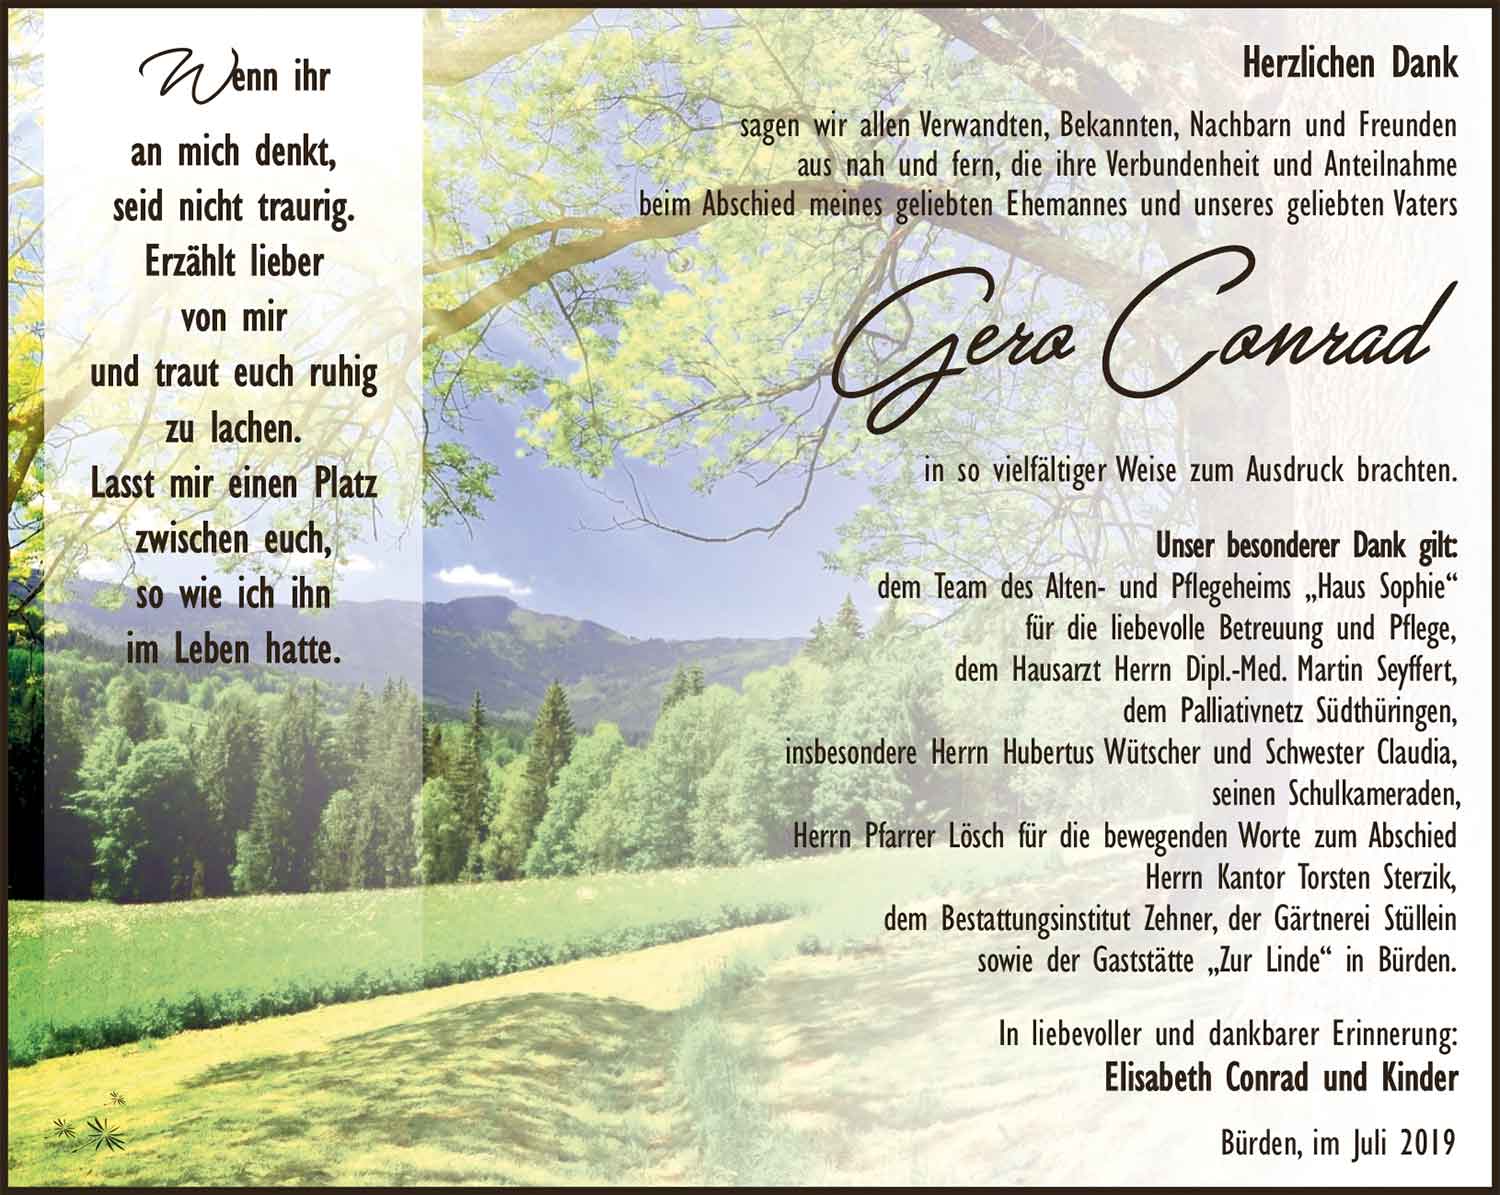 Wenn ihr
an mich denkt,
seid nicht traurig.
Erzählt lieber
von mir
und traut euch ruhig
zu lachen.
Lasst mir einen Platz
zwischen euch,
so wie ich ihn
im Leben hatte.
Herzlichen Dank
sagen wir allen Verwandten, Bekannten, Nachbarn und Freunden
aus nah und fern, die ihre Verbundenheit und Anteilnahme
beim Abschied meines geliebten Ehemannes und unseres geliebten Vaters
Gero Conrad
in so vielfältiger Weise zum Ausdruck brachten.
Unser besonderer Dank gilt:
dem Team des Alten- und Pflegeheims „Haus Sophie“
für die liebevolle Betreuung und Pflege,
dem Hausarzt Herrn Dipl.-Med. Martin Seyffert,
dem Palliativnetz Südthüringen,
insbesondere Herrn Hubertus Wütscher und Schwester Claudia,
seinen Schulkameraden,
Herrn Pfarrer Lösch für die bewegenden Worte zum Abschied
Herrn Kantor Torsten Sterzik,
dem Bestattungsinstitut Zehner, der Gärtnerei Stüllein
sowie der Gaststätte „Zur Linde“ in Bürden.
In liebevoller und dankbarer Erinnerung:
Elisabeth Conrad und Kinder
Bürden, im Juli 2019